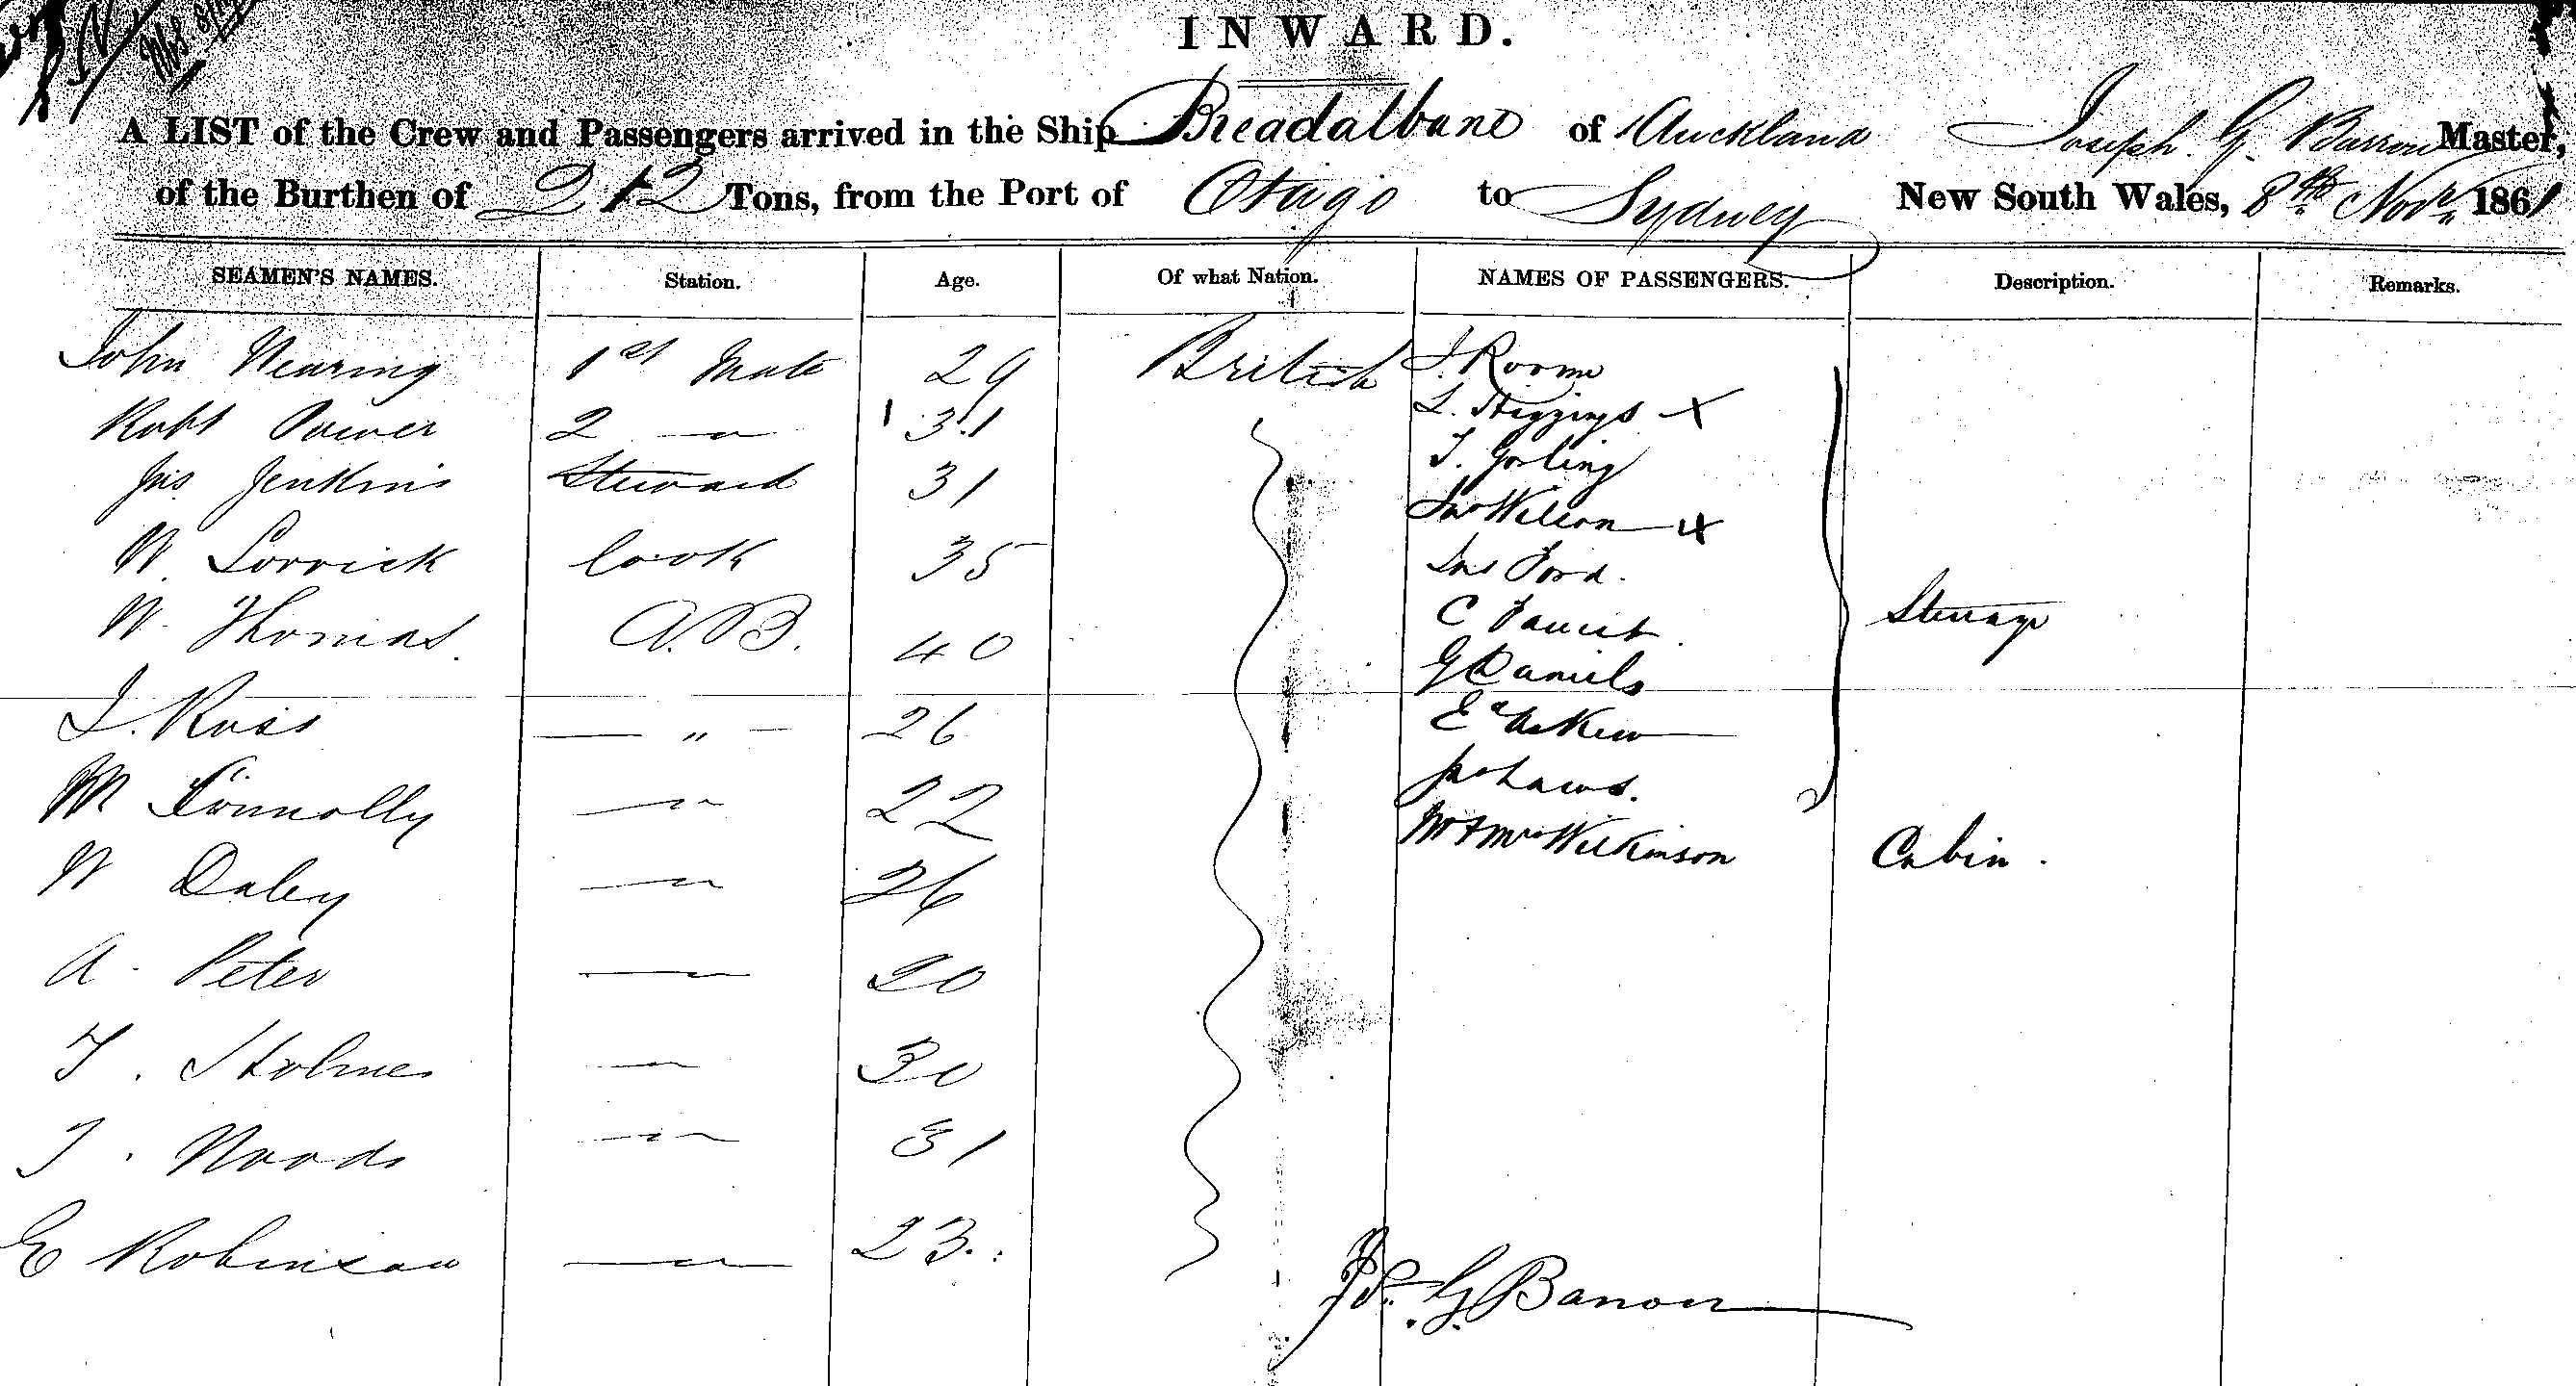 INWARD.
A LIST of the Crew and Passengers arrived in the Ship Breadalbane of Auckland Joseph. G. Barron Master,
of the Burthen of 212 Tons, from the Port of Otago to Sydney New South Wales, 8th Novr 1861
SEAMEN'S NAMES. Station. Age. Of what Nation. NAMES OF PASSENGERS. Description. Remarks.
John Nearing 1st Mate 29 British J. Roome
Robt Power 2 — 31 L. Higgings X
Jas Jenkins Steward 31 T. Gosling
W. Lorrick Cook 35 Jno Wilson X
W. Thomas. A.B. 40 Jas Ford.
C Faucit.
Steerage
J. Ross — " — 26 G Daniels
Ed Askew
M Connolly — " 22 Jas Laws.
W Daley — " 26 Mr & Mrs Wilkinson Cabin.
A. Peter — " 20
T. Holmes — " 30
T. Woods — " 31
E Robinson — " 23.
Js. G. Barron